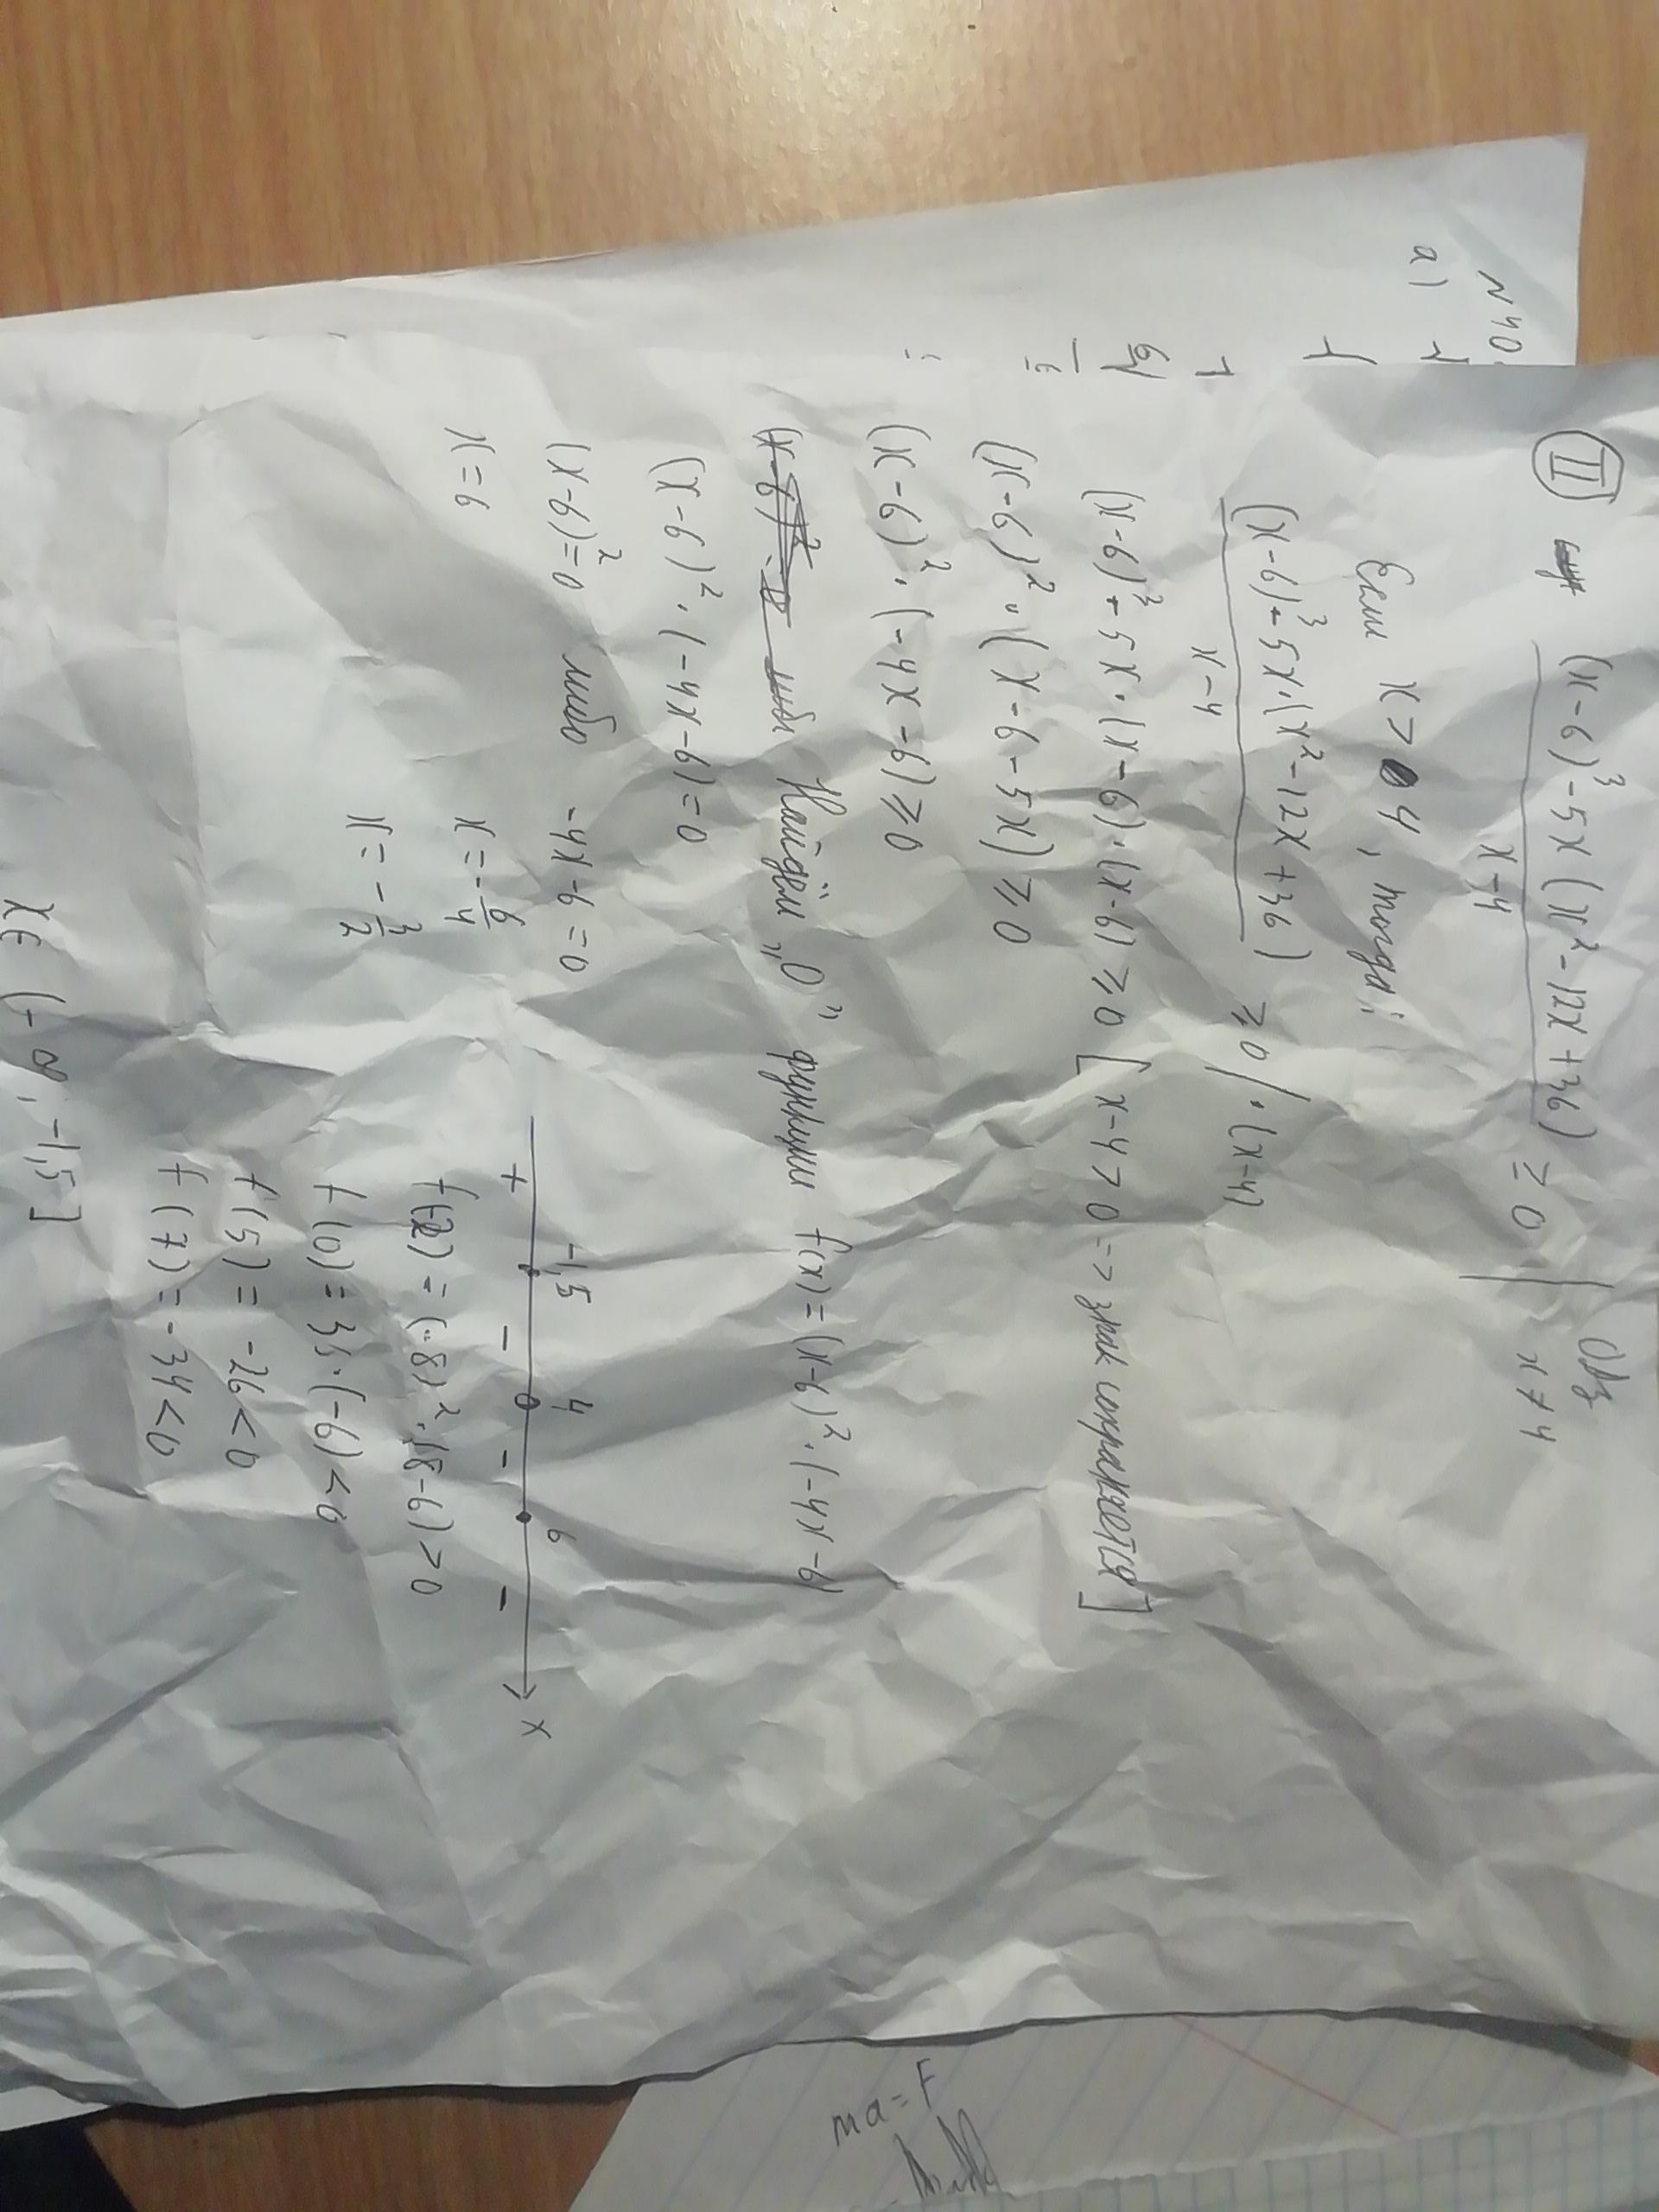 N40
a)
II (x-6)³-5x(x²-12x+36) ≥ 0 | Одз
x-4 x≠4
Если x>4, тогда:
(x-6)³-5x·(x²-12x+36) ≥0 /·(x-4)
x-4
(x-6)³-5x·(x-6)·(x-6)≥0 [x-4>0=> знак сохраняется]
(x-6)²·(x-6-5x)≥0
(x-6)²·(-4x-6)≥0
Найдём „0" функции f(x)=(x-6)²·(-4x-6)
(x-6)²·(-4x-6)=0
(x-6)²=0 либо -4x-6=0
x=6 x=-6/4
x=-3/2
-1,5 4 6
+ - 0 - - x
f(-2)=(-8)²·(8-6)>0
f(0)=36·(-6)<0
f(5)=-26<0
f(7)=-34<0
x∈(-∞;-1,5]
ma=F